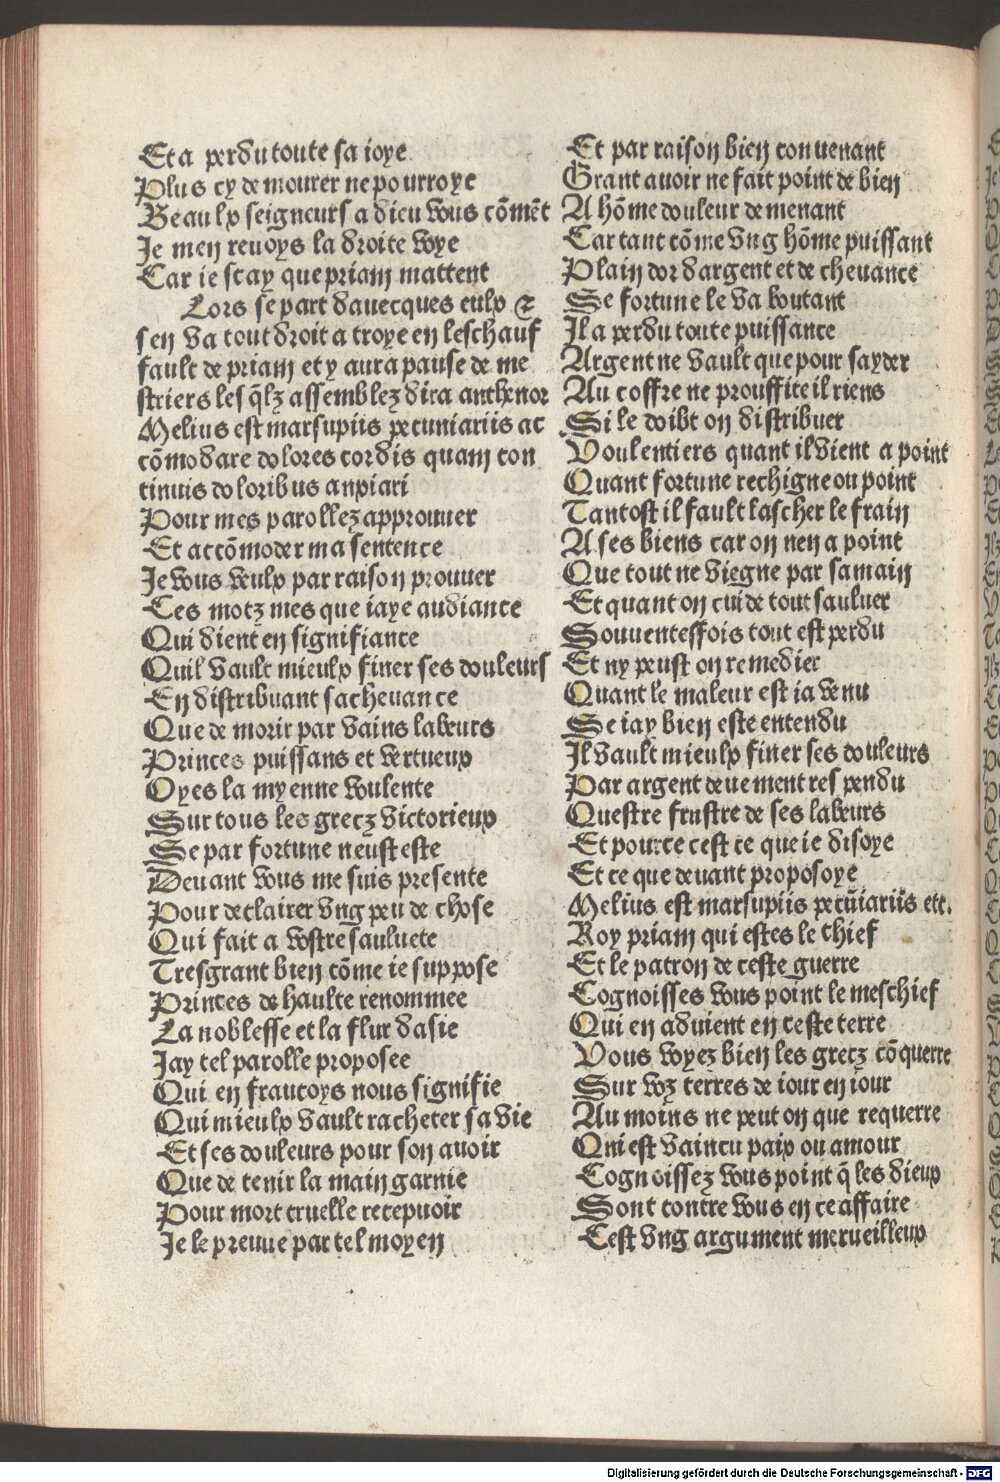 Et a perdu toute sa ioye
Plus cy de mourer ne pourroye
Beaulx seigneurs a dieu vous cõmẽt
Je men reuoys la droite voye
Car ie scay que priam mattent
Lors se part dauecques eulx &
sen va tout droit a troye en leschauf
fault de priam et y aura pause de me
striers les q̃lz assemblez dira anthenor
Melius est marsupiis pecuniariis ac
cõmodare dolores cordis quam con
tinuis doloribus anpiari
Pour mes parollez approuuer
Et accõmoder ma sentence
Je vous veulx par raison prouuer
Ces motz mes que iaye audiance
Qui dient en signifiance
Quil vault mieulx finer ses douleurs
En distribuant sa cheuance
Que de morir par vains labeurs
Princes puissans et vertueux
Oyes la myenne voulente
Sur tous les grecz victorieux
Se par fortune neust este
Deuant vous me suis presente
Pour declairer vng peu de chose
Qui fait a vostre sauluete
Tresgrant bien cõme ie suppose
Princes de haulte renommee
La noblesse et la flur dasie
Jay tel parolle proposee
Qui en francoys nous signifie
Qui mieulx vault racheter sa vie
Et ses douleurs pour son auoir
Que de tenir la main garnie
Pour mort cruelle recepuoir
Je le preuue par tel moyen
Et par raison bien conuenant
Grant auoir ne fait point de bien
A hõme douleur demenant
Car tant cõme vng hõme puissant
Plain dor dargent et de cheuance
Se fortune le va boutant
Il a perdu toute puissance
Argent ne vault que pour sayder
Au coffre ne prouffite il riens
Si le doibt on distribuer
Voulentiers quant il vient a point
Quant fortune rechigne ou point
Tantost il fault lascher le frain
A ses biens car on nen a point
Que tout ne viegne par sa main
Et quant on cuide tout sauluer
Souuentesfois tout est perdu
Et ny peust on remedier
Quant le maleur est ia venu
Se iay bien este entendu
Il vault mieulx finer ses douleurs
Par argent deuement respendu
Questre frustre de ses labeurs
Et pource cest ce que ie disoye
Et ce que deuant proposoye
Melius est marsupiis pecũiariis etc.
Roy priam qui estes le chief
Et le patron de ceste guerre
Cognoisses vous point le meschief
Qui en aduient en ceste terre
Vous voyez bien les grecz cõquerre
Sur voz terres de iour en iour
Au moins ne peut on que requerre
Qui est vaincu paix ou amour
Cognoissez vous point q̃ les dieux
Sont contre vous en ce affaire
Cest vng argument merueilleux
Digitalisierung gefördert durch die Deutsche Forschungsgemeinschaft - DFG